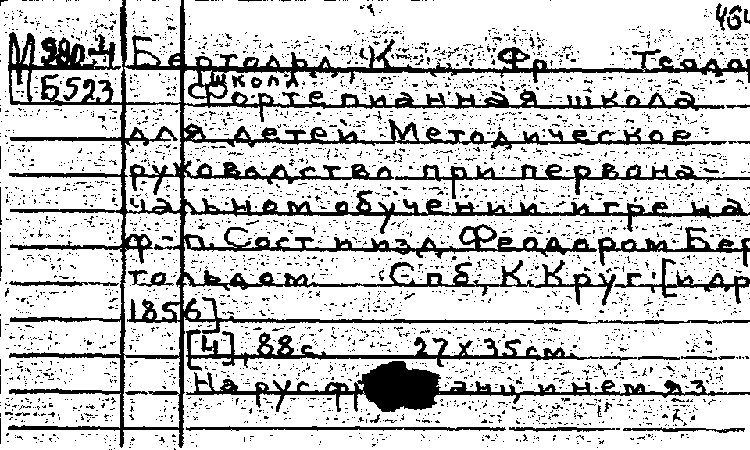 464
М 980-4 Бертольд, К. Фр. Теодор
Б523 школа
Фортепианная школа
для детей Методическое
руководство при первона-
чальном обучении игре на
ф.-п. Сост и изд. Феодором Бер
тольдом. Спб., К. Круг. [и др
1856]
[4], 88 с. 27 х 35 см.
На рус и нем яз.